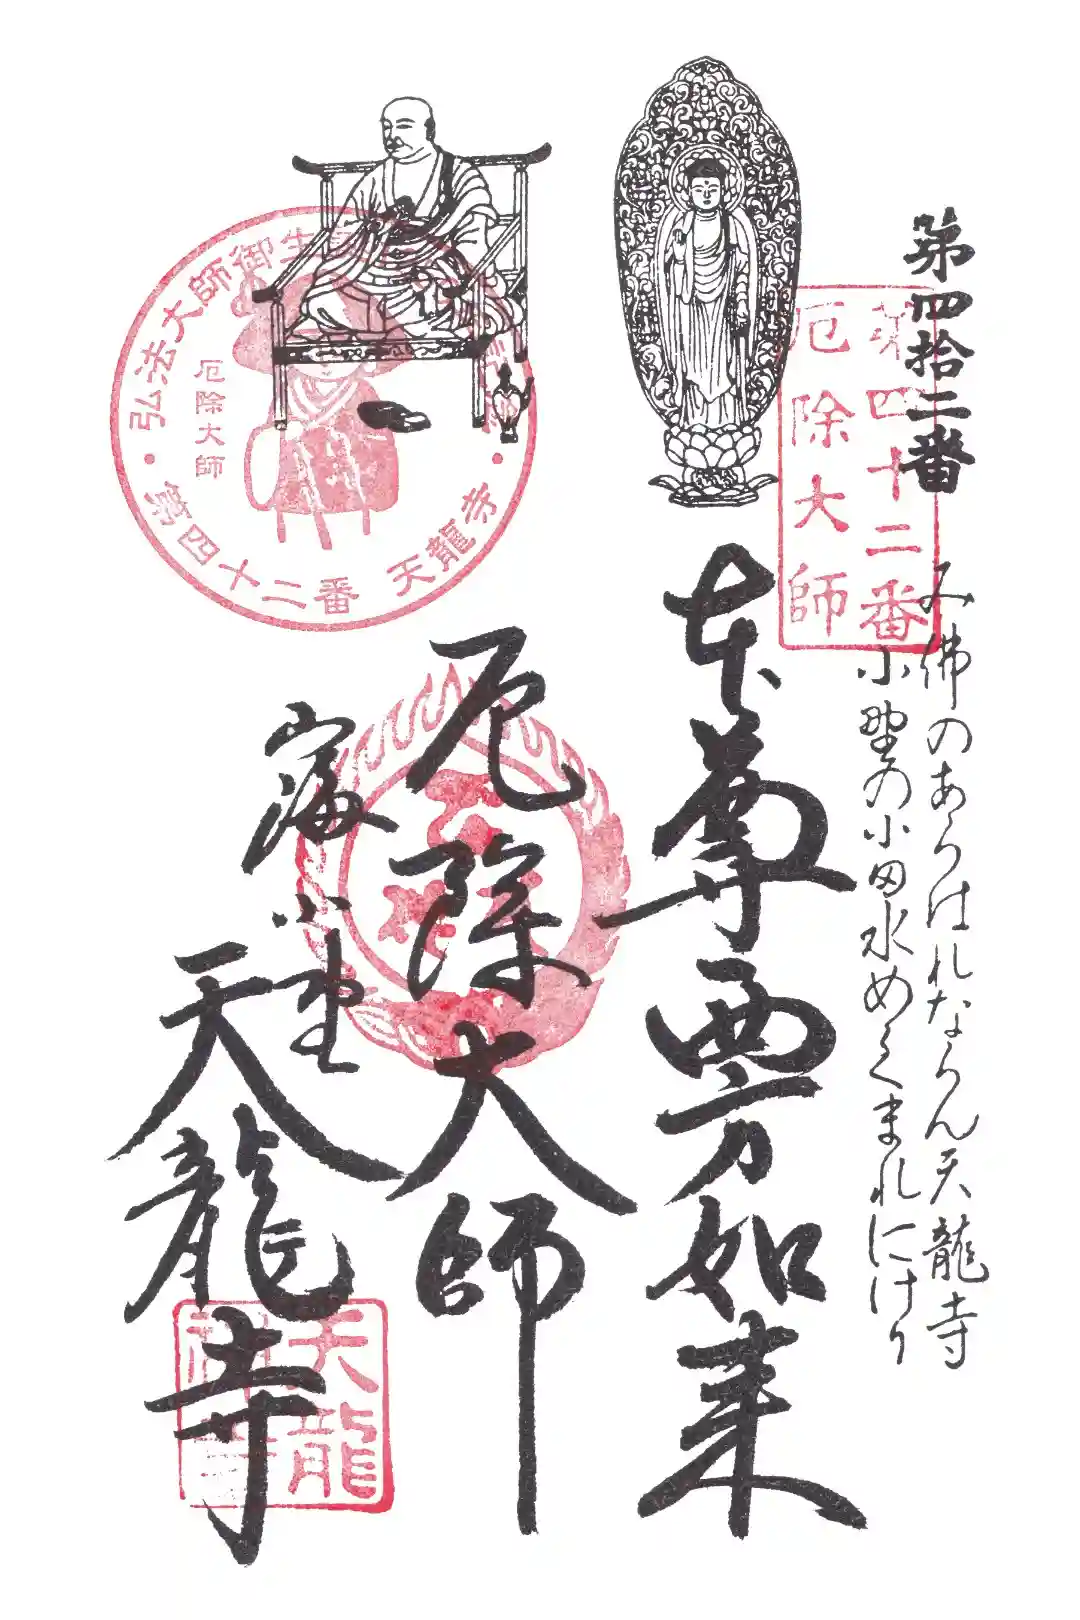 第四拾二番
み佛のあらはれならん天龍寺
小野の小田水めくまれにけり
第四十二番
厄除大師
本尊 西方如来
厄除大師
小野
天龍寺
弘法大師御生
厄除大師
第四十二番 天龍寺
天龍